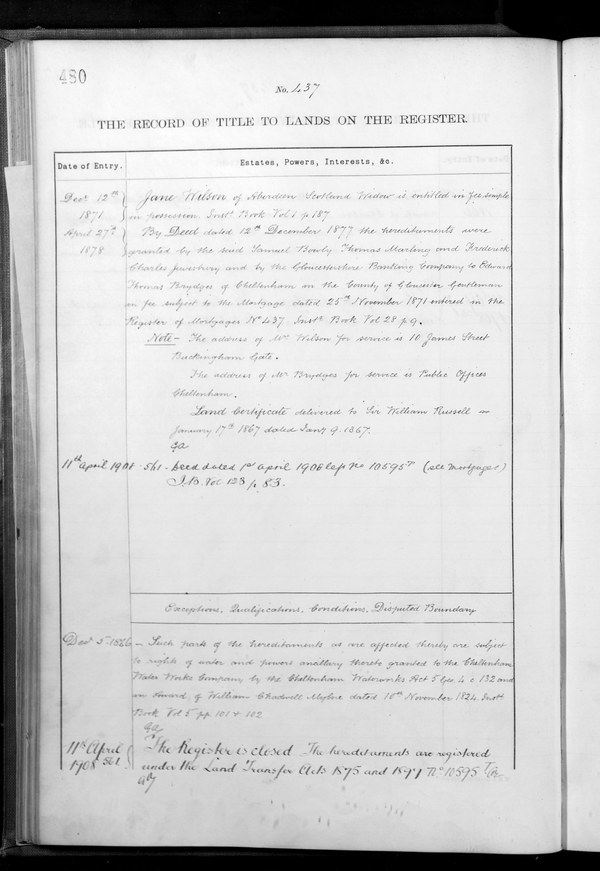 480
No. 437
THE RECORD OF TITLE TO LANDS ON THE REGISTER.
Date of Entry.
Estates, Powers, Interests, &c.
Decr 12th 1871
Jane Wilson of Aberdeen Scotland Widow is entitled in fee simple
in possession Instt Book Vol 1 p 187
April 27th 1878
By Deed dated 12th December 1877 the hereditaments were
granted by the said Samuel Bowly Thomas Marling and Frederick
Charles and by the Gloucestershire Banking Company to Edward
Thomas Brydges of Cheltenham in the County of Gloucester Gentleman
in fee subject to the Mortgage dated 25th November 1871 entered in the
Register of Mortgages No 437 Instt Book Vol 28 p 9.
Note - The address of Mrs Wilson for service is 10 James Street
Buckingham Gate.
The address of Mr Brydges for service is Public Offices
Cheltenham.
Land Certificate delivered to Sir William Russell on
January 17th 1867 dated Jany 9. 1867.
11th April 1908
561 - Deed dated 1st April 1908 No 10595 (see Mortgages)
I.B. Vol 123 p 83.
Exceptions, Qualifications, Conditions, Disputed Boundary
Decr 5 1866
- Such parts of the hereditaments as are affected thereby are subject
to rights of water and powers ancillary thereto granted to the Cheltenham
Water Works Company by the Cheltenham Waterworks Act 5 Geo. 4 c 132 and
an Award of William Chadwell Mylne dated 10th November 1824 Instt
Book Vol 5 pp 101 & 102
11th April 1908 561
The Register is closed The hereditaments are registered
under the Land Transfer Acts 1875 and 1897 No 10595